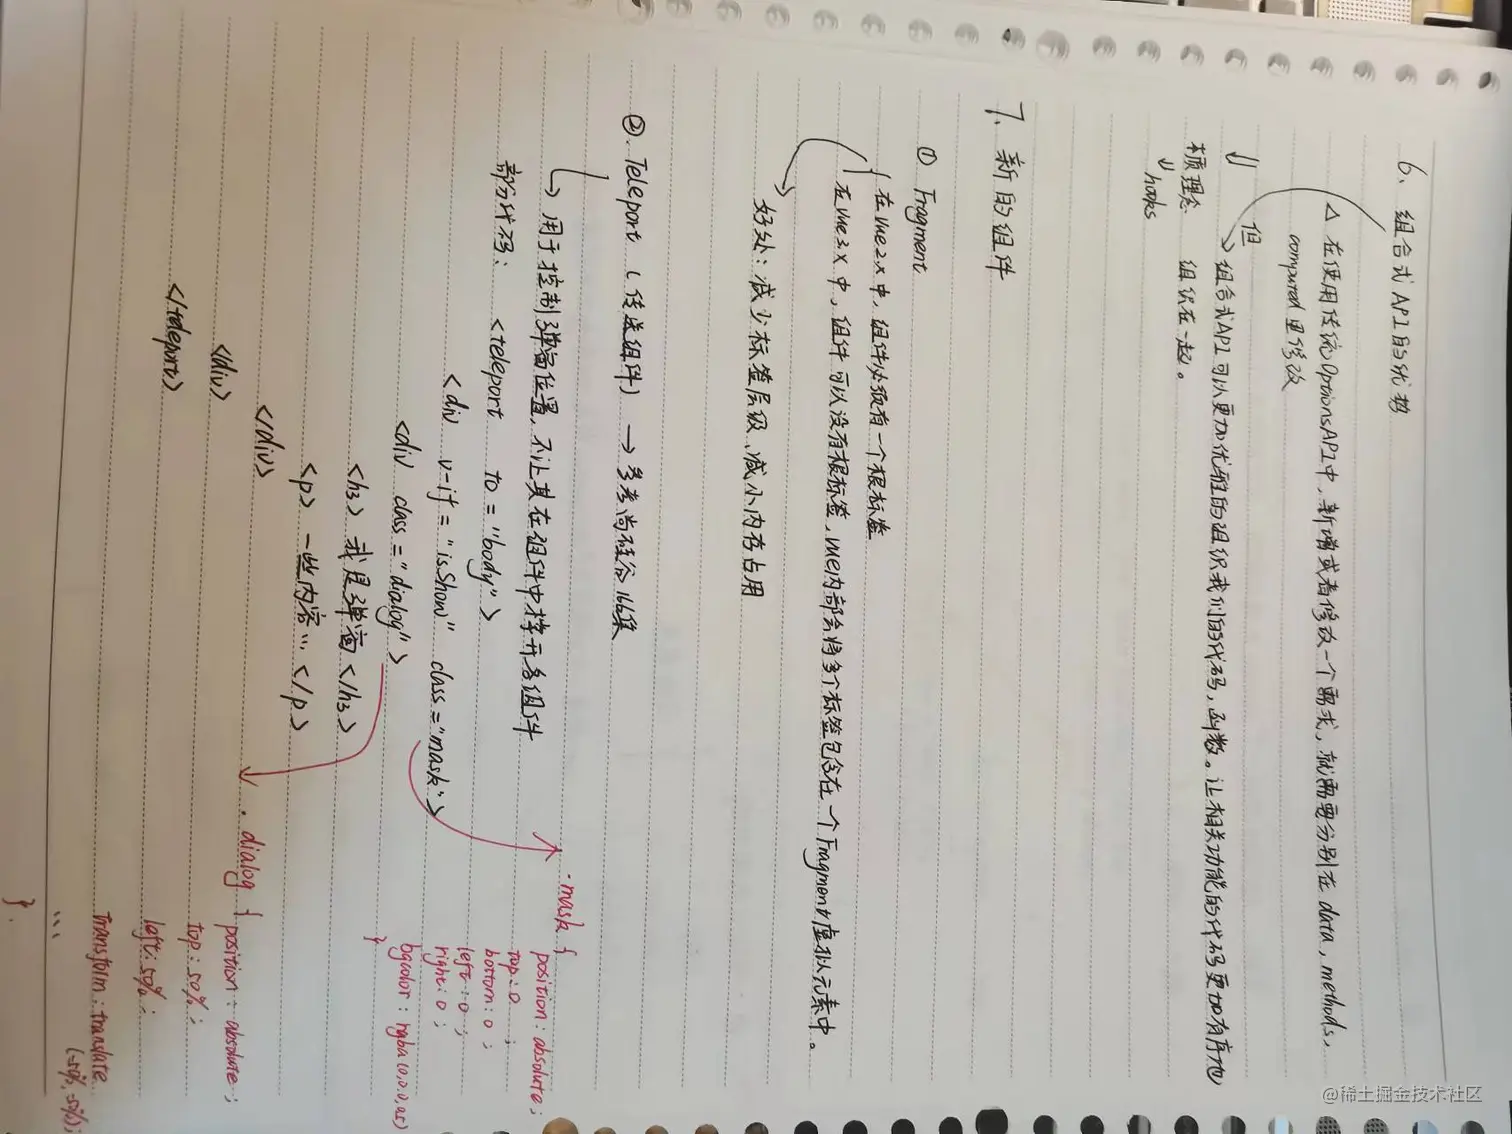 6、组合式API的优势
△ 在使用传统OptionsAPI中，新增或者修改一个需求，就需要分别在data，methods，
computed里修改
但
组合式API可以更加优雅的组织我们的代码，函数。让相关功能的代码更加有序地
组织在一起。
本质理念
hooks
7、新的组件
① Fragment
在vue2.x中，组件必须有一个根标签
在vue3.x中，组件可以没有根标签，vue内部会将多个标签包含在一个Fragment虚拟元素中。
好处：减少标签层级、减小内存占用
②、Teleport（传送组件）→ 参考尚硅谷166集
用于控制弹窗位置，不让其在组件中撑开各组件
部分代码：<teleport to="body">
<div v-if="isShow" class="mask">
<div class="dialog">
<h3>我是弹窗</h3>
<p>一些内容…</p>
</div>
</div>
</teleport>
.mask {
position：absolute；
top：0；
bottom：0；
left：0；
right：0；
bgcolor：rgba(0,0,0,0.5)
}
.dialog {
position：absolute；
top：50%；
left：50%；
transform：translate
(-50%,-50%)；
…
}.
@稀土掘金技术社区